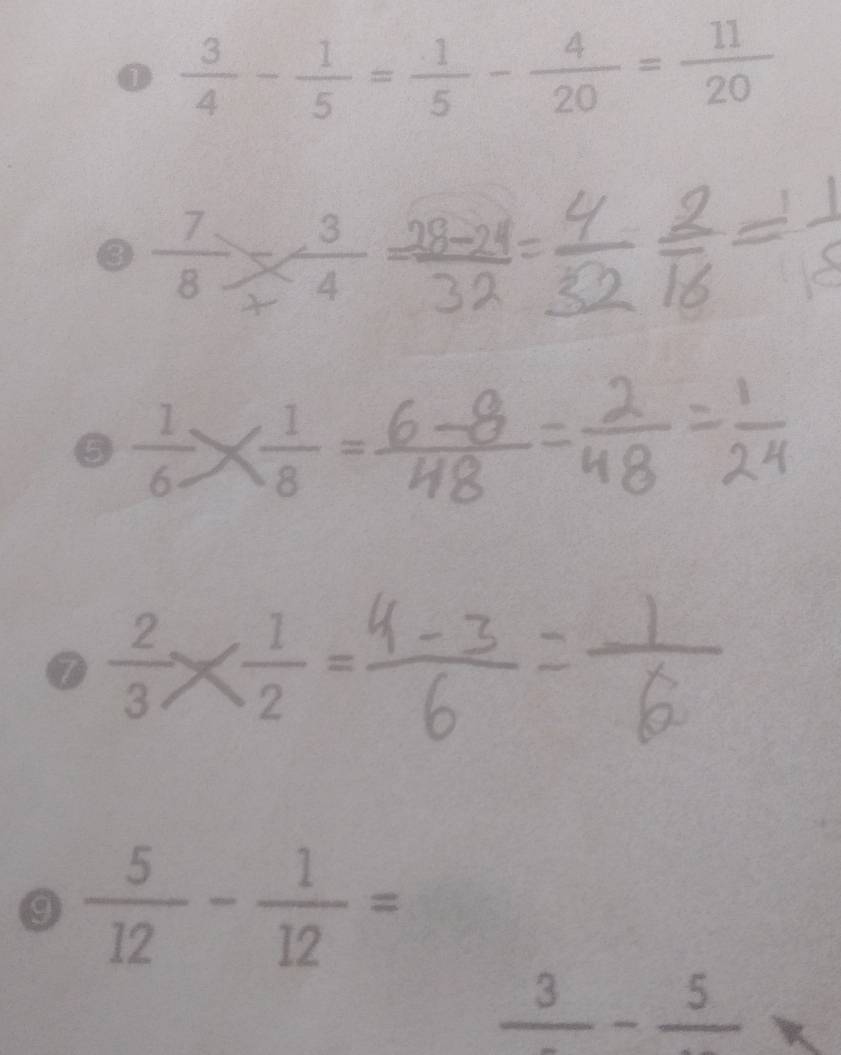 ① 3/4 - 1/5 = 1/5 - 4/20 = 11/20
③ 7/8 - 3/4 = 28-24/32 = 4/32 = 2/16 = 1/8
⑤ 1/6 - 1/8 = 6-8/48 = 2/48 = 1/24
⑦ 2/3 - 1/2 = 4-3/6 = 1/6
⑨ 5/12 - 1/12 =
3 - 5